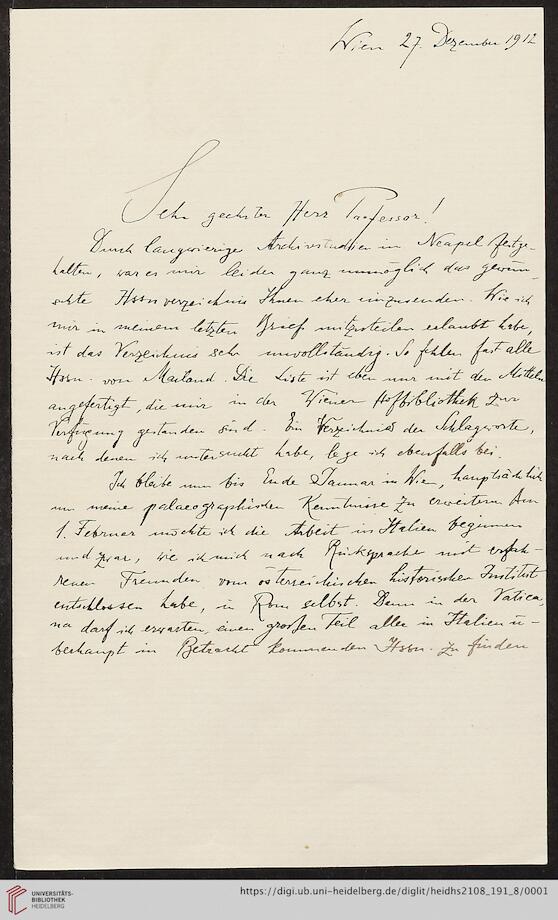 Wien 27. Dezember 1912
Sehr geehrter Herr Professor!
Durch langwierige Archivstudien in Neapel festge-
halten, war es mir leider ganz unmöglich das gewün-
schte Hssnverzeichnis Ihnen eher einzusenden. Wie ich
mir in meinem letzten Brief mitzuteilen erlaubt habe,
ist das Verzeichnis sehr unvollständig. So fehlen fast alle
Hssn. von Mailand. Die Liste ist eben nur mit den Mitteln
angefertigt, die mir in der Wiener Hofbibliothek zur
Verfügung gestanden sind. Ein Verzeichnis der Schlagworte,
nach denen ich untersucht habe, lege ich ebenfalls bei.
Ich bleibe nun bis Ende Jannar in Wien, hauptsächlich
um meine palaeographischen Kenntnisse zu erweitern. Am
1. Februar möchte ich die Arbeit in Italien beginnen
und zwar, wie ich mich nach Rücksprache mit erfah-
renen Freunden vom österreichischen historischen Institut
entschlossen habe, in Rom selbst. Denn in der Vatica-
na darf ich erwarten, einen großen Teil aller in Italien ü-
berhaupt in Betracht kommenden Hssn. zu finden
UNIVERSITÄTS-
BIBLIOTHEK
HEIDELBERG
https://digi.ub.uni-heidelberg.de/diglit/heidhs2108_191_8/0001